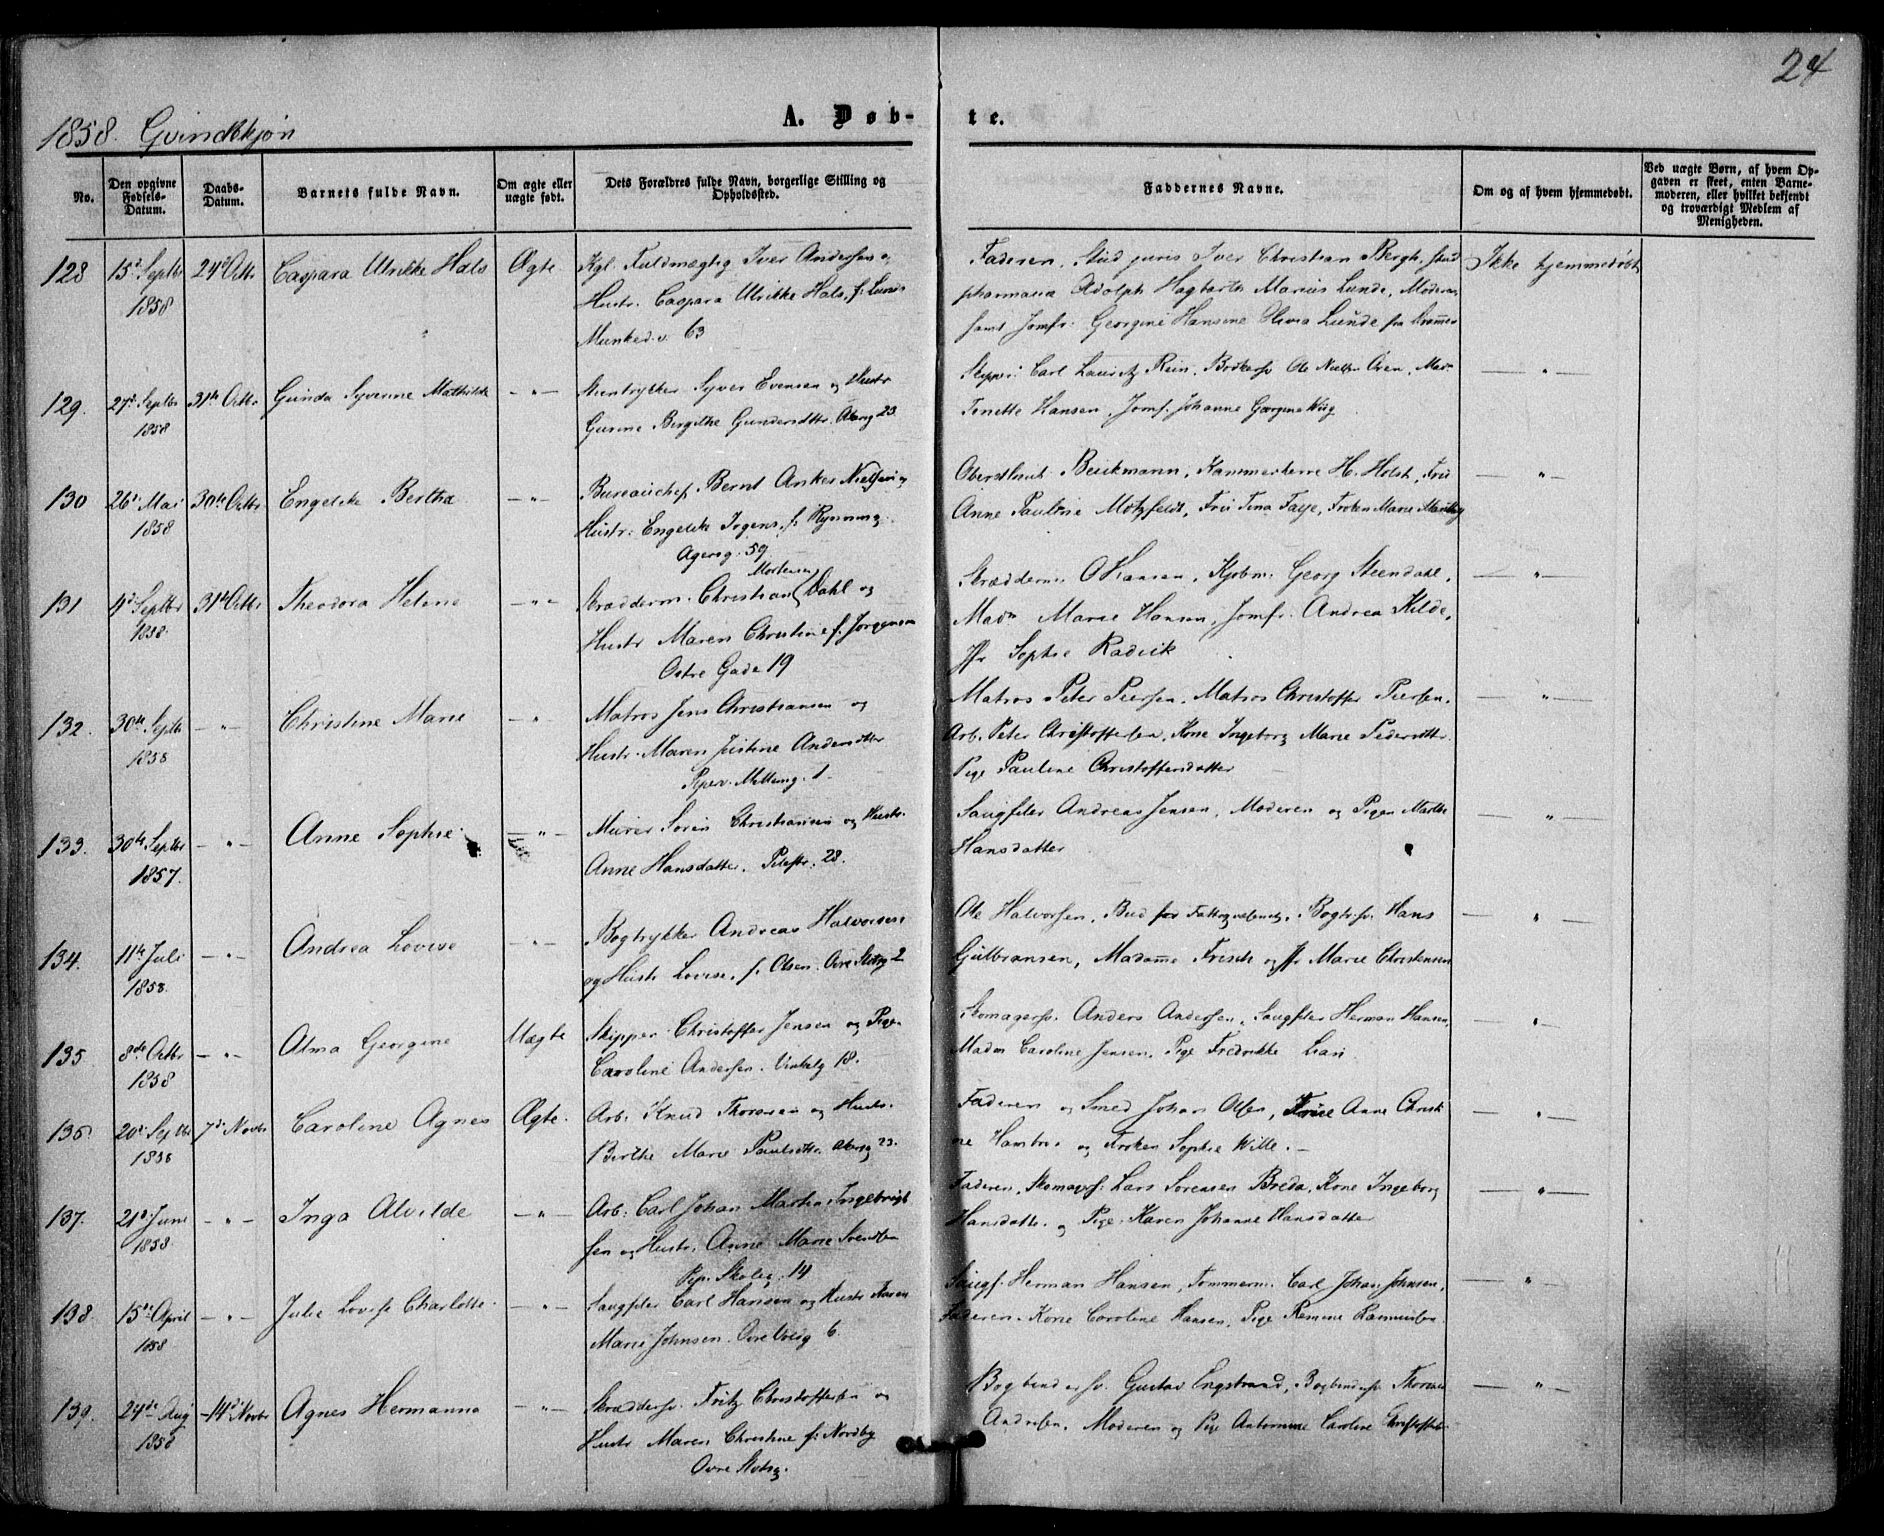 24
1858. Qvindekjøn
A. Døb-
te.
No.
Den opgivne Fødsels-Datum.
Daabs-Datum.
Barnets fulde Navn.
Om ægte eller uægte født.
Dets Forældres fulde Navn, borgerlige Stilling og Opholdssted.
Faddernes Navne.
Om og af hvem hjemmedøbt.
Ved uægte Børn, af hvem Op-
gaven er skeet, enten Barne-
moderen, eller hvilket bekjendt
og troværdigt Medlem af
Menigheden.
128 15de Septbr 1858 24de Octbr Caspara Ulrikke Hals Ægte.
Kgl. Fuldmægtig Iver Andersen og
Hustr. Caspara Ulrikke Hals, f: Lund
Munked.v. 63
Faderen, Stud juris Iver Christian Bergh, stud
pharmacia Adolph Hagbarth Marius Lunde, Moderen
samt Jomfr. Georgine Hansine Olivia Lunde fra
Ikke hjemmedøbt
129. 27de Septbr 1858 31te Octbr Gunda Syverine Mathilde — " —
Steentrykker Syver Evensen og Hustr
Gurine Birgithe Gundersdttr. Akersg 23
Skipper Carl Lauritz Rein, Ole Øren, Mad
Tonette Hansen, Jomf. Johanne Georgine Wiig
— " —
130 26de Mai 1858 30te Octbr Engelike Bertha — " —
Bureauchef Bernt Anker Nielsen og
Hustr: Engelike Irgens, f: Rynning.
Agersg. 59
Oberstlieut Beickmann, Kammerherre H. Holst, Fru
Anne Pauline Motzfeldt, Fru Tina Faye, Frøken Marie
— " —
131 4de Septbr 1858. 31te Octbr Theodora Helene — " —
Mortensen
Skrædderm. Christian Dahl og
Hustr Maren Christine f: Jørgensen
Østre Gade 19
Skrædderm. O Hansen, Kjøbm: Georg Steendahl,
Madm Marie Hansen, Jomfr. Andrea Kilde,
Jfr Sophie Radvik
— " —
132. 30te Septbr 1858 — " — Christine Marie — " —
Matros Jens Christiansen og
Hustr. Maren Justine Andersdtter
Piperv. Mellemg. 1.
Matros Peter Petersen, Matros Christoffer Petersen,
Arb. Peter Christoffersen, Kone Ingeborg Marie Pedersdtter.
Pige Pauline Christoffersdatter
— " —
133. 30te Septbr 1857. — " — Anne Sophie. — " —
Murer Søren Christiansen og Hustr.
Anne Hansdatter. Pilestr. 28.
Saugfiler Andreas Jensen, Moderen og Pigen Marthe
Hansdatter
— " —
134. 11te Juli 1858. — " — Andrea Lovise — " —
Bogtrykker Andreas Halvorsen
og Hustr Lovise, f. Olsen. Øvre Slotsg 2
Ole Halvorsen, Bud for Fattigvæsenet, Bogtr.sv. Hans
Gulbransen, Madame Frisch og Jfr Marie Christensen
— " —
135. 8de Octbr 1858 — " — Alma Georgine Uægte
Skipper Christoffer Jensen og Pige
Caroline Andersen. Vinkelg 18.
Skomagersv. Anders Andersen, Saugfiler Herman Hansen,
Madm Caroline Jensen. Pige Fredrikke
— " —
136. 20de Septbr 1858 7de Novbr Caroline Agnes Ægte.
Arb. Knud Thoresen og Hustr.
Birthe Marie Paulsdttr. Akersg 23.
Faderen og Smed Johan Olsen, Anne Christi
ne og Frøken Sophie Wille. —
— " —
137. 21de Juni 1858. — " — Inga Alvilde — " —
Arb: Carl Johan Martin Ingebrigt
sen og Hustr. Anne Marie Svendsen
Pip. Skoleg. 14
Faderen, Skomagersv. Lars Sørensen Breda, Kone Ingeborg
Hansdatter og Pige Karen Johanne Hansdatter
— " —
138. 15de April 1858 — " — Julie Lovise Charlotte. — " —
Saugfiler Carl Hansen og Hustr Karen
Marie Johnsen. Øvre Voldg 6.
Saugf: Herman Hansen, Tømmerm: Carl Johan Johnsen,
Faderen. Kone Caroline Hansen, Pige Rasmussen.
— " —
139. 24de Aug 1858 14de Novbr Agnes Hermanna — " —
Skræddersv. Fritz Christoffersen og
Hustr Maren Christine f: Nordby
Øvre Slotsg.
Bogbindersv. Gustav Engstrand, Bogbindersv. Thorvald
Andersen. Moderen og Pige Caroline Christoffersen
— " —